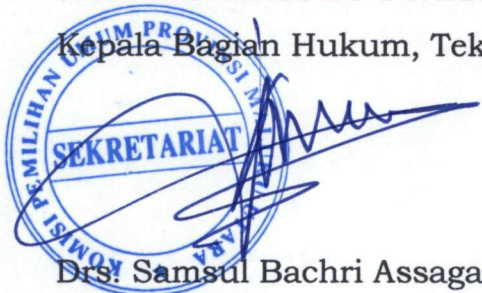 Kepala Bagian Hukum, Tek
KOMISI PEMILIHAN UMUM PROVINSI MALUKU UTARA
SEKRETARIAT
Drs. Samsul Bachri Assaga